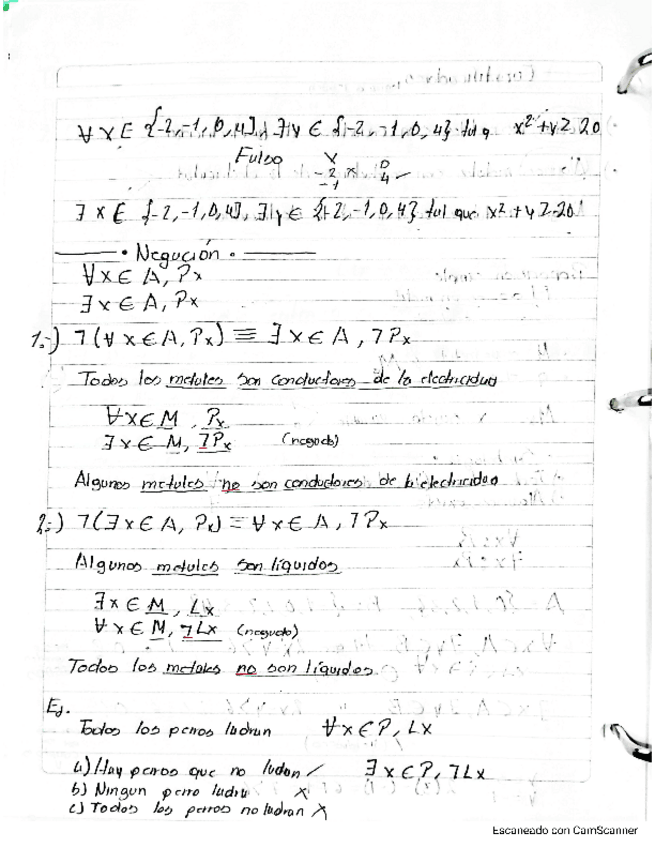 ∀ x ∈ {-2,-1,0,4}, ∃ y ∈ {-2,-1,0,4} tal q x² + y ≥ 20
Falso y 0
-2 x 4 ✓
-1
∃ x ∈ {-2,-1,0,4}, ∃ y ∈ {-2,-1,0,4} tal que x² + y ≥ 20
• Negación •
∀x ∈ A, Px
∃x ∈ A, Px
1.-) ㄱ(∀ x ∈ A, Px) ≡ ∃ x ∈ A, ㄱPx
Todos los metales son conductores de la electricidad
∀x ∈ M, Px
∃x ∈ M, ㄱPx (negado)
Algunos metales no son conductores de la electricidad
2.-) ㄱ(∃x ∈ A, Px) ≡ ∀x ∈ A, ㄱPx
Algunos metales son líquidos
∃x ∈ M, Lx
∀x ∈ M, ㄱLx (negado)
Todos los metales no son líquidos
Ej.
Todos los perros ladran ∀x ∈ P, Lx
a) Hay perros que no ladran ✓ ∃x ∈ P, ㄱLx
b) Ningun perro ladra x
c) Todos los perros no ladran x
Escaneado con CamScanner